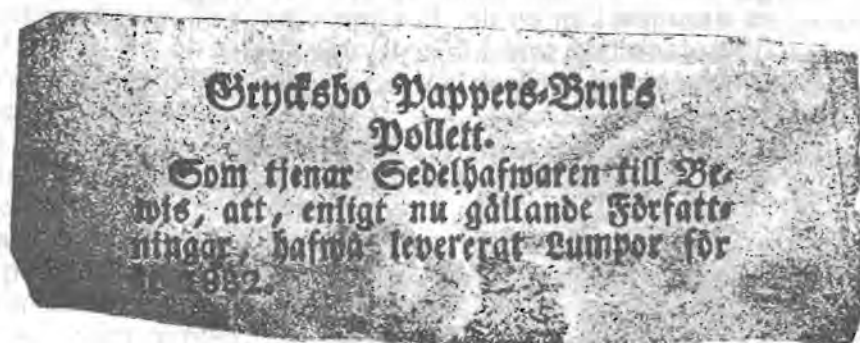 Grycksbo Pappers-Bruks
Pollett.
Som tjenar Sedelhafwaren till Be-
wis, att, enligt nu gällande Författ-
ningar, hafwa levererat Lumpor för